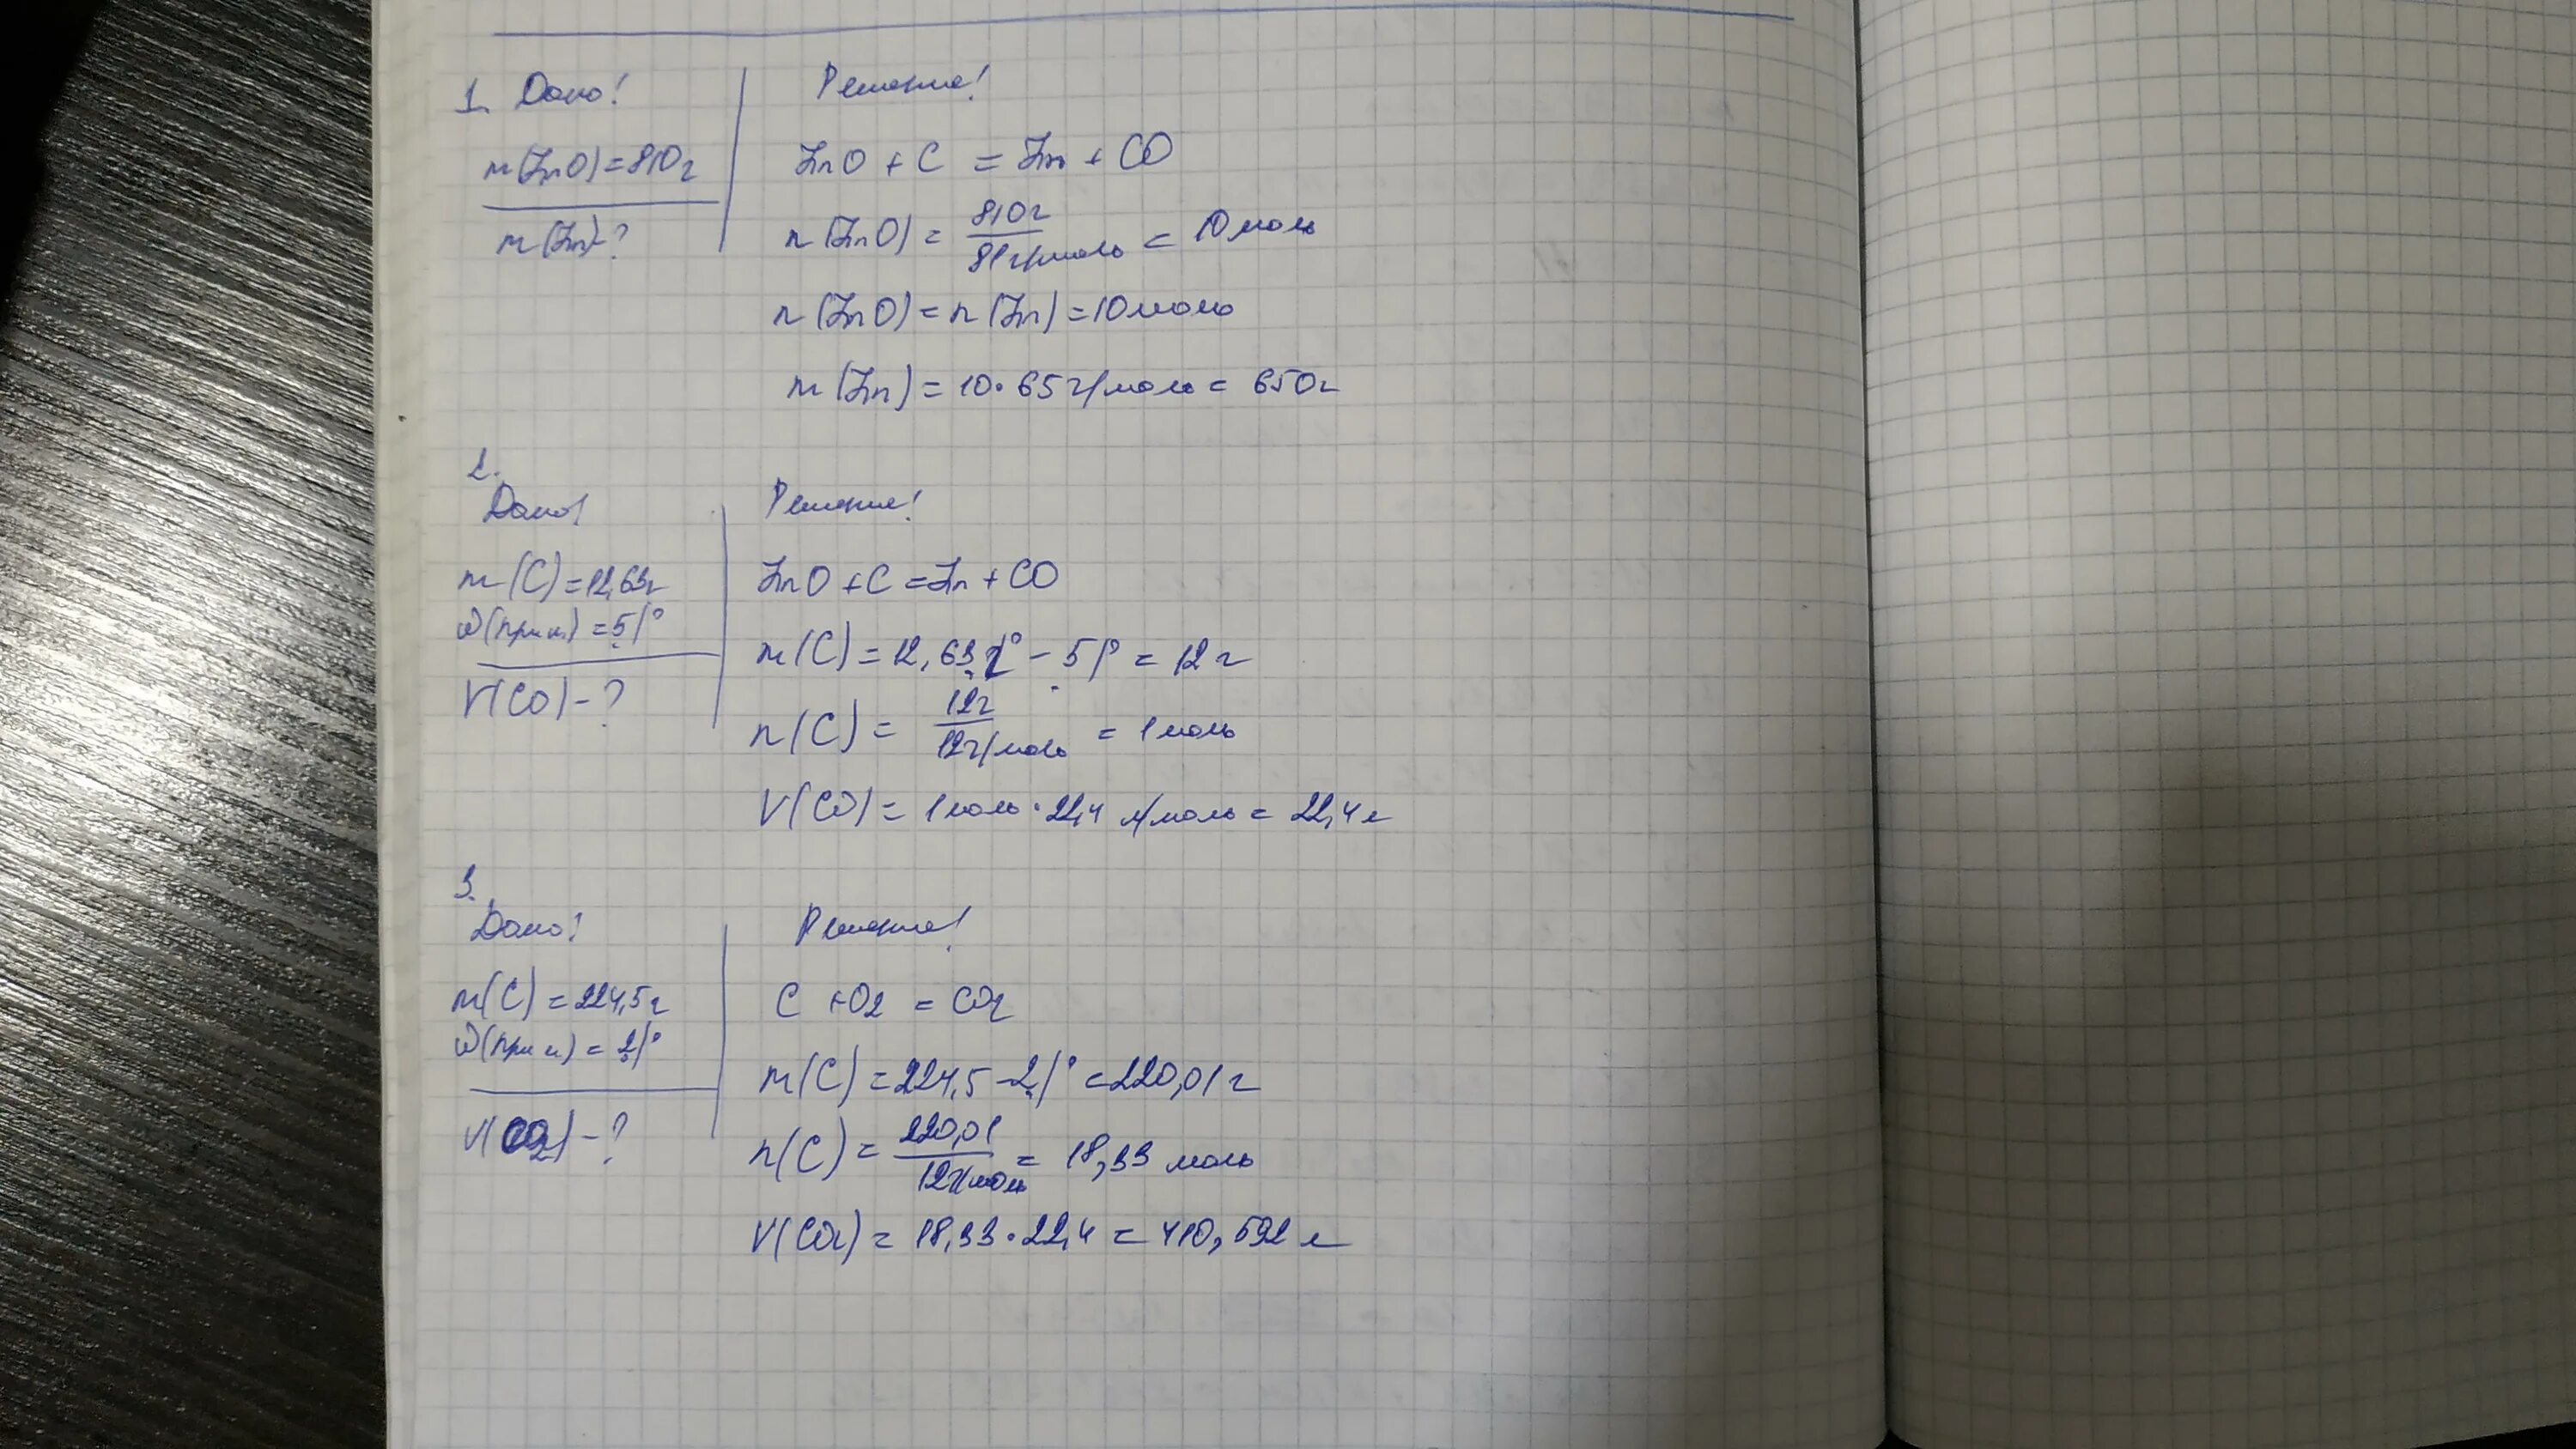 1. Дано!
Решение!
m(ZnO)=810г
m(Zn)-?
ZnO + C = Zn + CO
n(ZnO) = 810г / 81г/моль = 10моль
n(ZnO) = n(Zn) = 10моль
m(Zn) = 10·65г/моль = 650г
2.
Дано!
Решение!
m(C)=12,63г
ω(прим) = 5%
V(CO)-?
ZnO + C = Zn + CO
m(C) = 12,63 - 5% = 12г
n(C) = 12г / 12г/моль = 1моль
V(CO) = 1моль·22,4 л/моль = 22,4л
3.
Дано!
Решение!
m(C) = 224,5г
ω(прим) = 2%
V(CO2)-?
C + O2 = CO2
m(C) = 224,5 - 2% = 220,01г
n(C) = 220,01 / 12г/моль = 18,33 моль
V(CO2) = 18,33·22,4 = 410,592 л